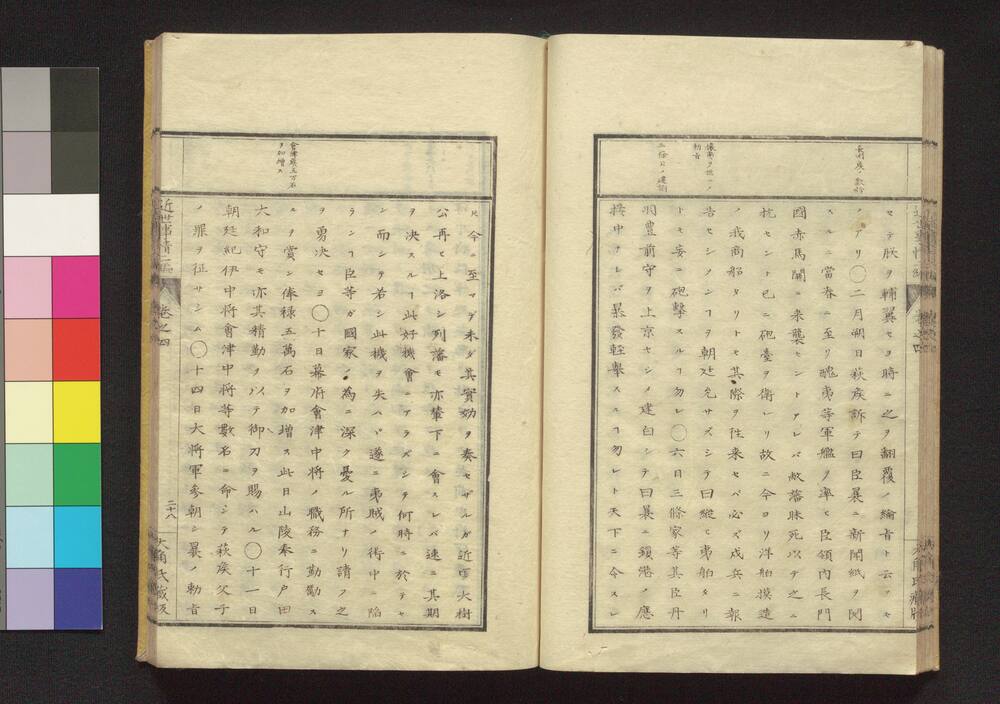 セテ朕ヲ輔翼セヨヲ時ニ之ヲ翻覆ノ綸言ト云フモ
ノアリ〇二月朔日萩矦訴テ曰臣曩ニ新聞紙ヲ閲
スルニ當春ニ至リ醜夷等軍艦ヲ率ヒ臣領內長門
國赤馬關ニ來襲セントアレバ敝藩昧死以テ之ニ
抗セント已ニ砲臺ヲ衛レリ故ニ今ヨリ洋舶摸造
ノ我商船タリトモ其際ヲ徃来セバ必ズ戍兵ニ報
告セシメンヿヲ朝廷允サズシテ曰縱ヒ夷舶タリ
トモ妄ニ砲擊スルヿ勿レ〇六日三條家等其臣丹
羽豊前守ヲ上京セシメ建白シテ曰曩ニ鎖港ノ應
接中ナレバ暴發輕擧スルヿ勿レト天下ニ令スレ
攘夷ヲ
勅旨
三條氏ノ建議
近世事情二編
巻之四
二十八
大角氏蔵版
會津矦五万石
ヲ加增ス
ヒ今ニ至マデ未ダ其實効ヲ奏セザルガ近日大樹
公再ヒ上洛シ列藩モ亦輦下ニ會スレバ速ニ其期
ヲ決スルヿ此好機會ニアラズンヲ何時ニ於テセ
ン而シテ若シ此機ヲ失ハバ遂ニ夷賊ノ術中ニ陷
ランヿ臣等ガ國家ノ為ニ深ク憂ル所ナリ請フ之
ヲ勇決セヨ〇十日幕府會津中将ノ職務ニ勤勵ス
ルヲ賞シ俸祿五萬石ヲ加增ス此日山陵奉行戸田
大和守モ亦其精勤ヲ以テ御刀ヲ賜ハル〇十一日
朝廷紀伊中将會津中将等數名ニ命シテ萩矦父子
ノ罪ヲ征サシム〇十四日大将軍參朝シ曩ノ勅旨